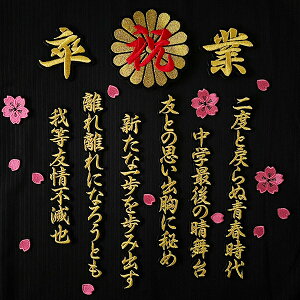 卒祝業
二度と戻らぬ青春時代
中学最後の晴舞台
友との思い出胸に秘め
新たな一歩を歩み出す
離れ離れになろうとも
我等友情不滅也